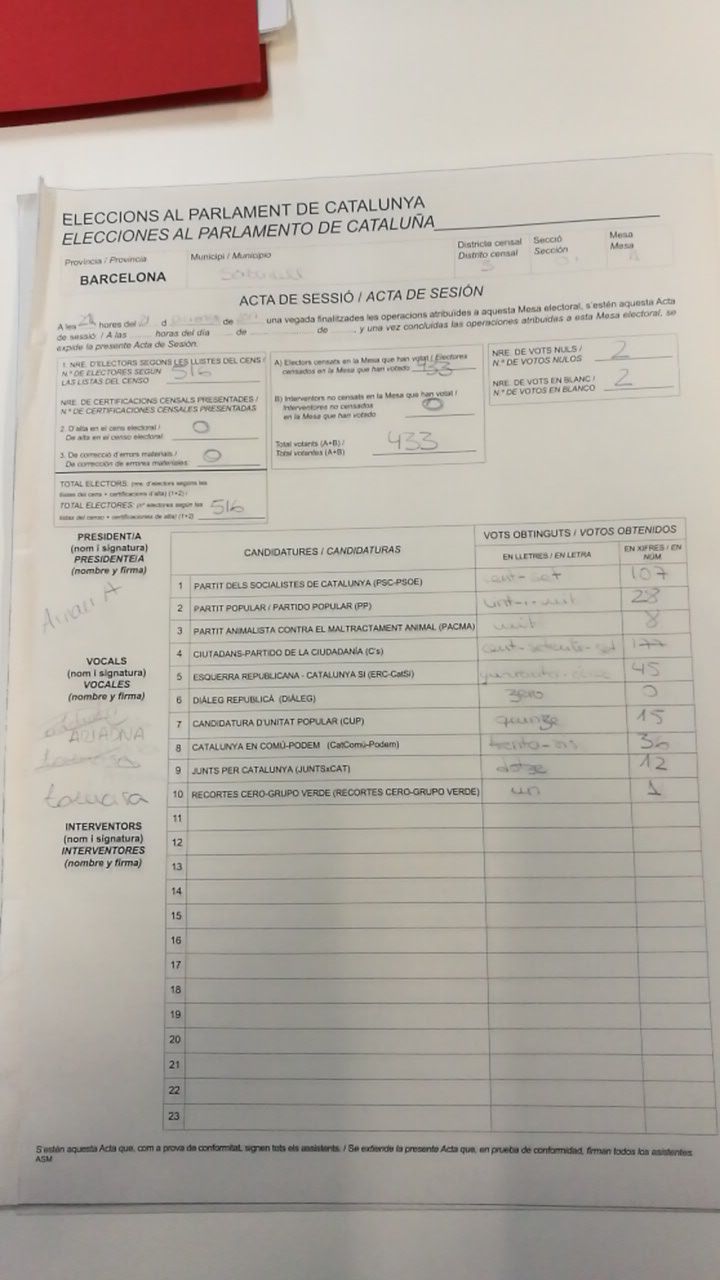 ELECCIONS AL PARLAMENT DE CATALUNYA
ELECCIONES AL PARLAMENTO DE CATALUÑA
Província / Provincia
Municipi / Municipio
Districte censal
Distrito censal
Secció
Sección
Mesa
Mesa
BARCELONA
Sabadell
ACTA DE SESSIÓ / ACTA DE SESIÓN
A les hores del 21 d de una vegada finalitzades les operacions atribuïdes a aquesta Mesa electoral, s'estén aquesta Acta
de sessió. / A las horas del día de de , y una vez concluidas las operaciones atribuidas a esta Mesa electoral, se
expide la presente Acta de Sesión.
1. NRE. D'ELECTORS SEGONS LES LLISTES DEL CENS /
N.º DE ELECTORES SEGÚN 516
LAS LISTAS DEL CENSO
NRE. DE CERTIFICACIONS CENSALS PRESENTADES /
N.º DE CERTIFICACIONES CENSALES PRESENTADAS
2. D'alta en el cens electoral / 0
De alta en el censo electoral
3. De correcció d'errors materials / 0
De corrección de errores materiales
TOTAL ELECTORS: (nre. d'electors segons les
llistes del cens + certificacions d'alta) (1+2) /
TOTAL ELECTORES: (nº electores según las 516
listas del censo + certificaciones de alta) (1+2)
A) Electors censats en la Mesa que han votat / Electores
censados en la Mesa que han votado 433
B) Interventors no censats en la Mesa que han votat /
Interventores no censados 0
en la Mesa que han votado
Total votants (A+B) / 433
Total votantes (A+B)
NRE. DE VOTS NULS / 2
N.º DE VOTOS NULOS
NRE. DE VOTS EN BLANC / 2
N.º DE VOTOS EN BLANCO
PRESIDENT/A
(nom i signatura)
PRESIDENTE/A
(nombre y firma)
VOCALS
(nom i signatura)
VOCALES
(nombre y firma)
ARIADNA
INTERVENTORS
(nom i signatura)
INTERVENTORES
(nombre y firma)
CANDIDATURES / CANDIDATURAS
VOTS OBTINGUTS / VOTOS OBTENIDOS
EN LLETRES / EN LETRA
EN XIFRES / EN
NÚM
1 PARTIT DELS SOCIALISTES DE CATALUNYA (PSC-PSOE) cent-set 107
2 PARTIT POPULAR / PARTIDO POPULAR (PP) vint-i-vuit 28
3 PARTIT ANIMALISTA CONTRA EL MALTRACTAMENT ANIMAL (PACMA) vuit 8
4 CIUTADANS-PARTIDO DE LA CIUDADANÍA (C's) cent-setanta-set 177
5 ESQUERRA REPUBLICANA - CATALUNYA SI (ERC-CatSí) 45
6 DIÀLEG REPUBLICÀ (DIÀLEG) zero 0
7 CANDIDATURA D'UNITAT POPULAR (CUP) quinze 15
8 CATALUNYA EN COMÚ-PODEM (CatComú-Podem) trenta-sis 36
9 JUNTS PER CATALUNYA (JUNTSxCAT) dotze 12
10 RECORTES CERO-GRUPO VERDE (RECORTES CERO-GRUPO VERDE) un 1
11
12
13
14
15
16
17
18
19
20
21
22
23
S'estén aquesta Acta que, com a prova de conformitat, signen tots els assistents. / Se extiende la presente Acta que, en prueba de conformidad, firman todos los asistentes.
ASM